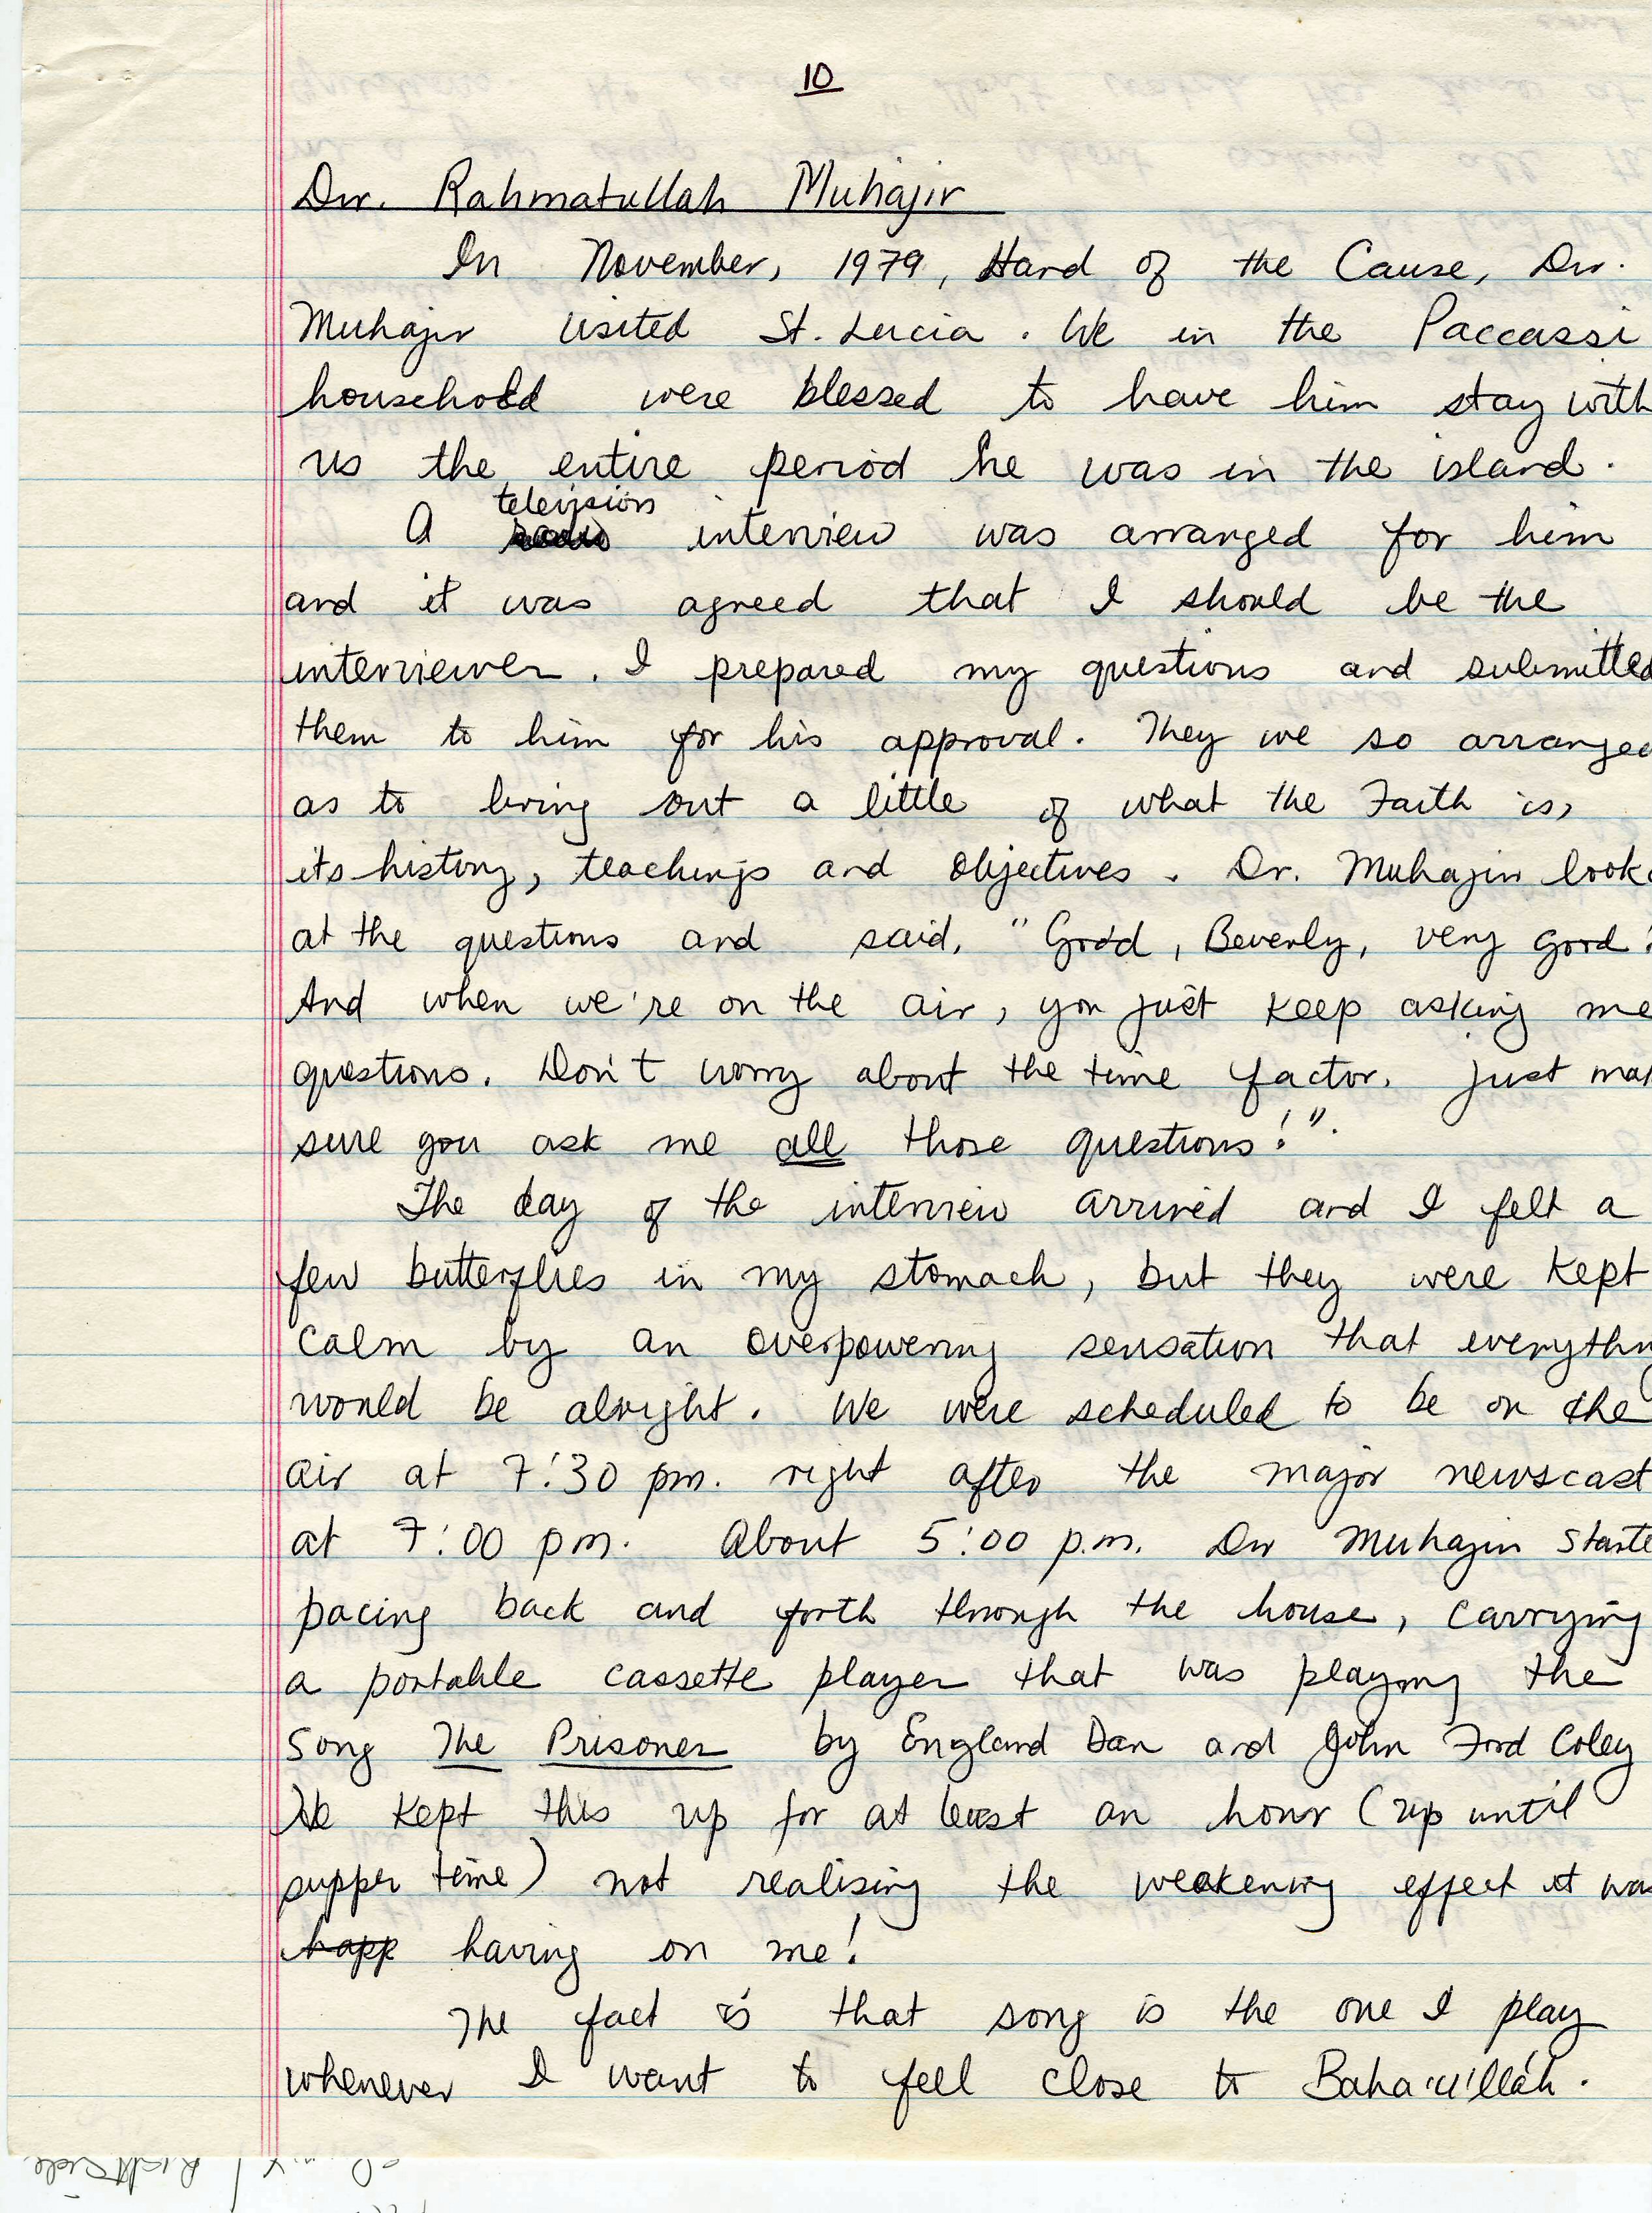 10
Dr. Rahmatullah Muhajir
In November, 1979, Hand of the Cause, Dr.
Muhajir visited St. Lucia. We in the Paccassi
household were blessed to have him stay with
us the entire period he was in the island.
television
A interview was arranged for him
and it was agreed that I should be the
interviewer. I prepared my questions and submitted
them to him for his approval. They we so arranged
as to bring out a little of what the Faith is,
its history, teachings and objectives. Dr. Muhajir look
at the questions and said, "Good, Beverly, very good!
And when we're on the air, you just keep asking me
questions. Don't worry about the time factor. Just mak
sure you ask me all those questions!".
The day of the interview arrived and I felt a
few butterflies in my stomach, but they were kept
calm by an overpowering sensation that everything
would be alright. We were scheduled to be on the
air at 7:30 pm. right after the major newscast
at 7:00 pm. About 5:00 p.m. Dr Muhajir starte
pacing back and forth through the house, carrying
a portable cassette player that was playing the
song The Prisoner by England Dan and John Ford Coley
He kept this up for at least an hour (up until
supper time) not realising the weakening effect it was
happ having on me!
The fact is that song is the one I play
whenever I want to feel close to Baha'u'lláh.